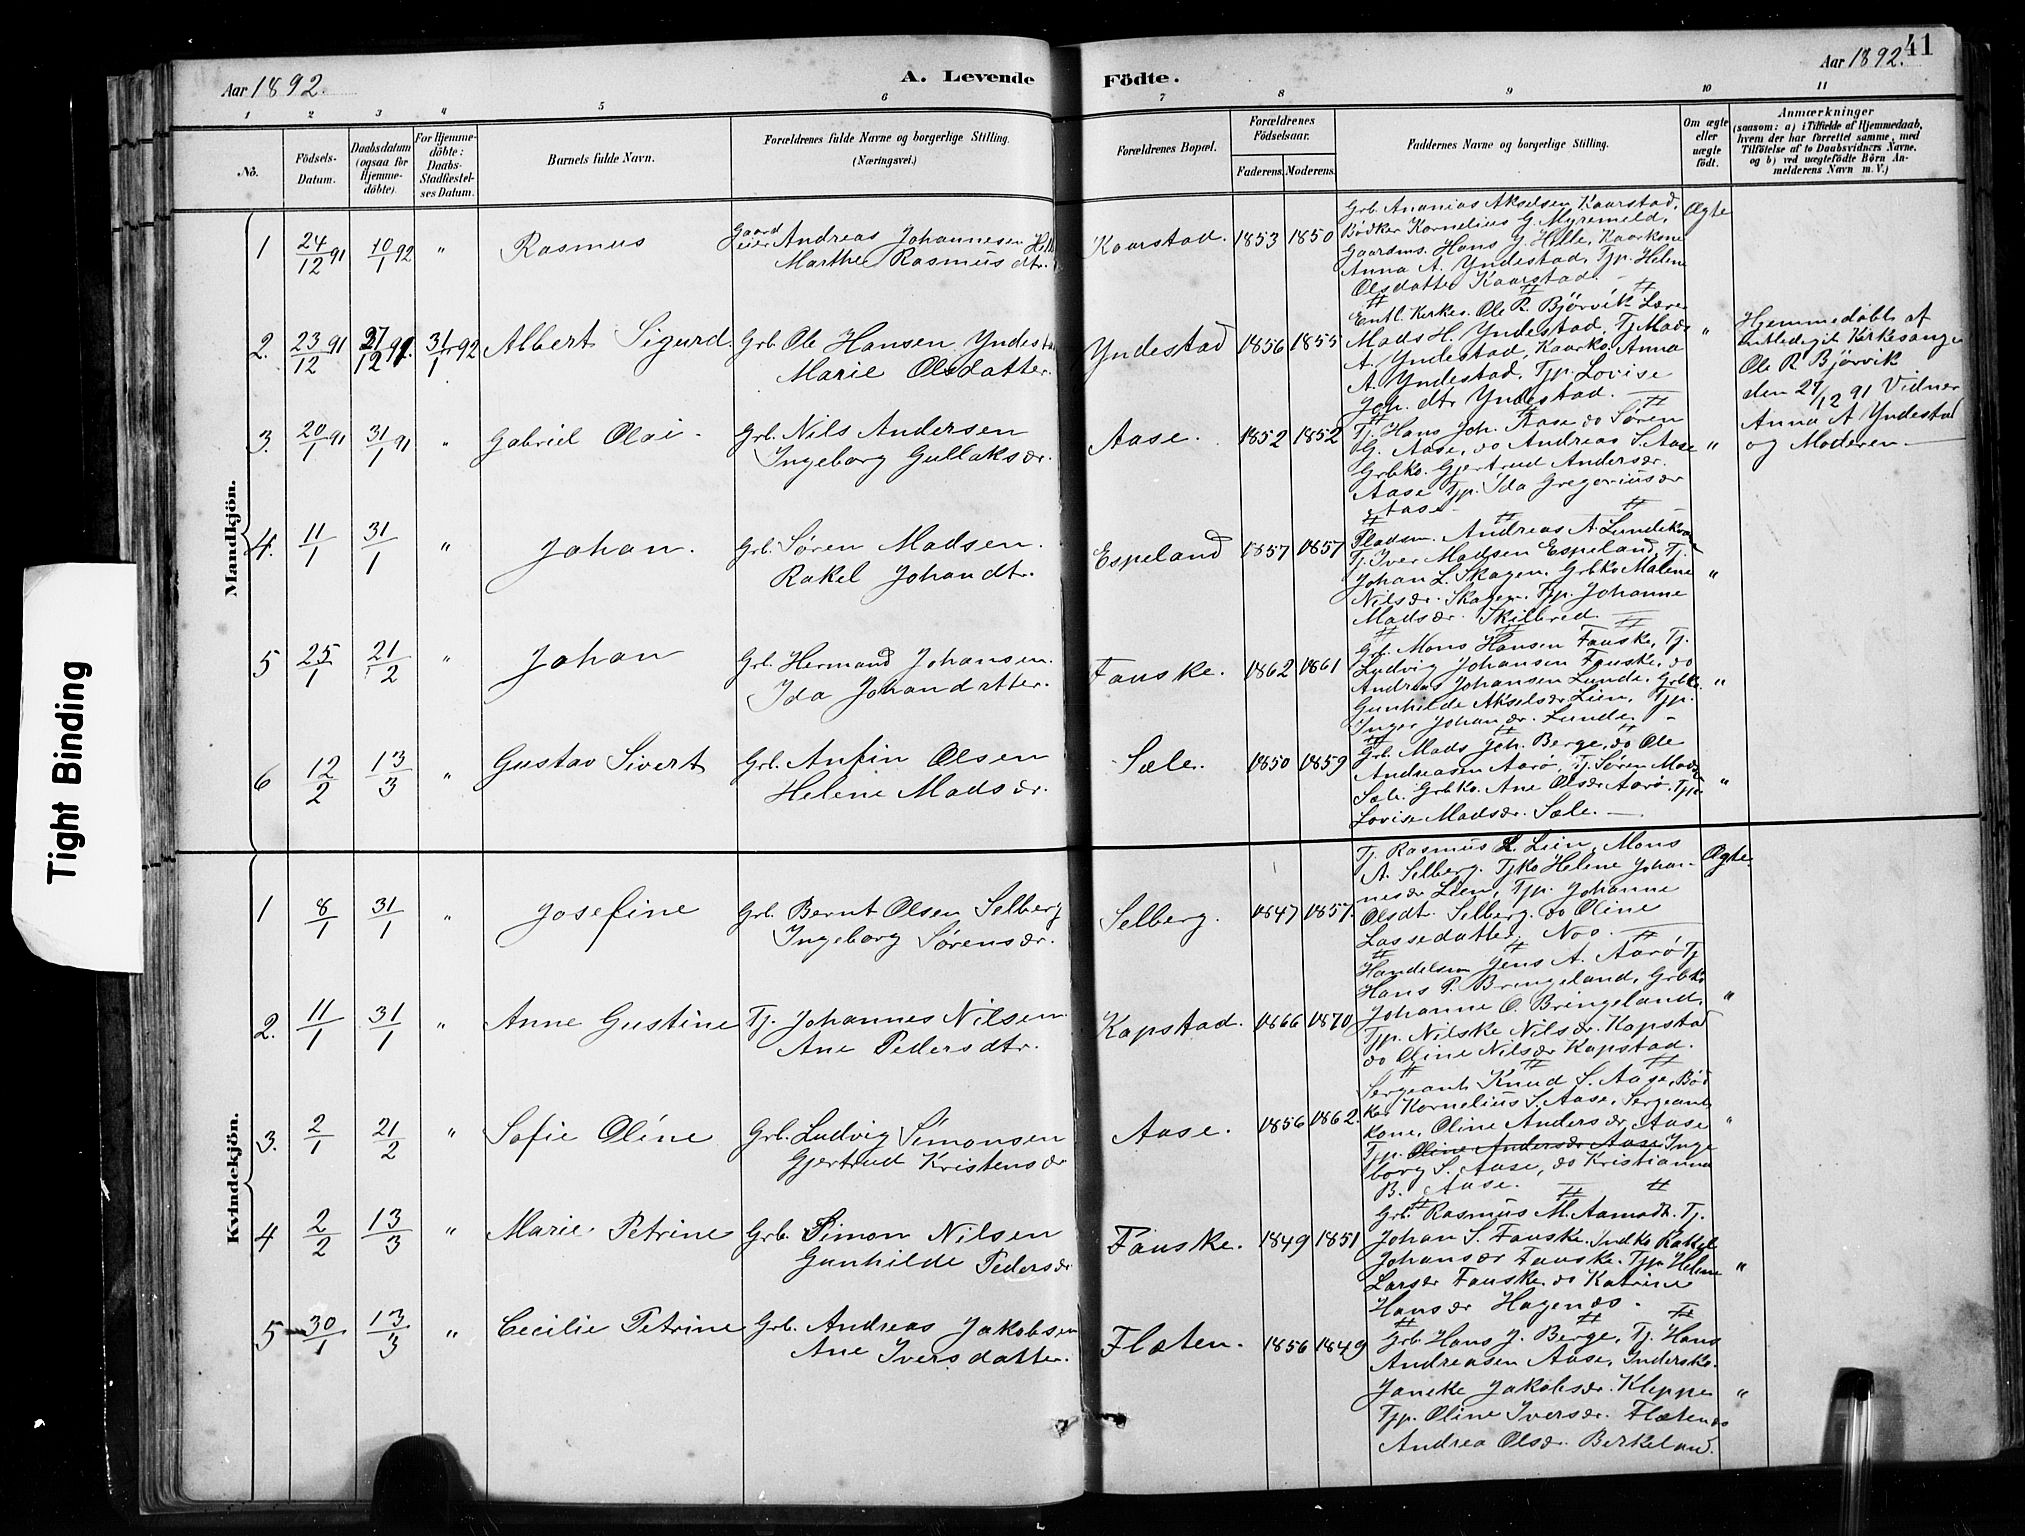 Aar 1892.
A. Levende Födte.
Aar 1892.
41
1 2 3 4 5 6 7 8 9 10 11
No.
Födsels-Datum.
Daabsdatum (ogsaa for Hjemme-döbte).
For Hjemme-döbte: Daabs-Stadfæstel-ses Datum.
Barnets fulde Navn.
Forældrenes fulde Navne og borgerlige Stilling. (Næringsvei.)
Forældrenes Bopæl.
Forældrenes Födselsaar.
Faderens. Moderens.
Faddernes Navne og borgerlige Stilling.
Om ægte eller uægte födt.
Anmærkninger
(saasom: a) i Tilfælde af Hjemmedaab,
hvem der har forrettet samme, med
Tilföielse af to Daabsvidners Navne,
og b) ved uægtefödte Börn An-
melderens Navn m. V.)
Mandkjön.
1 24/12 91 10/1 92 " Rasmus
Gaardeier Andreas Johannesen
Marthe Rasmusdtr.
Kaarstad. 1853 1850
Grb. Ananias Akselsen Kaarstad,
Bødker Kornelius G. Myremeld,
Gaardms. Hans J. Hille, Kaarkone
Anna A. Yndestad, Tjp. Helene
Olsdatter Kaarstad.
Ægte
2. 23/12 91 27/12 91. 31/1 92 Albert Sigurd.
Grb. Ole Hansen Yndestad
Marie Olsdatter.
Yndestad 1856 1855
Entl. Kirkes. Ole R. Bjørvik Lære
Mads H. Yndestad, Tj. Mads
A. Yndestad, Kaarko. Anna
A. Yndestad, Tjp. Lovise
Joh. dtr Yndestad.
"
Hjemmedøbt af
entlediget Kirkesanger
Ole R Bjørvik
den 27/12 91 Vidner
Anna A Yndestad
og Moderen.
3. 20/1 91 31/1 91 " Gabriel Olai
Grb. Nils Andersen
Ingeborg Gullaksdr.
Aase. 1852 1852
Tj. Hans Joh. Aase do Søren
G. Aase, do Andreas S. Aase
Grbko. Gjertrud Andersdr.
Aase Tjp. Ida Gregoriusdr
Aase
"
4. 11/1 31/1 " Johan.
Grb. Søren Madsen.
Rakel Johandtr.
Espeland 1857 1857
Pladsm. Andreas A. Lundekvam
Tj. Iver Madsen Espeland, Tj.
Johan L. Skagen, Grbko Malene
Nilsdr. Skagen, Tjp. Johanne
Madsdr. Skilbred
"
5 25/1 21/2 " Johan
Grb. Hermand Johansen.
Ida Johandatter.
Fauske. 1862 1861
Grb. Mons Hansen Fauske, Tj.
Ludvig Johansen Fauske, do
Andreas Johansen Lunde, Grbk.
Gunhilde Akselsdr Lien, Tjp.
Inger Johandr. Lunde.
"
6 12/2 13/3 " Gustav Sivert
Grb. Anfin Olsen
Helene Madsdr.
Sæle. 1850 1859
Grb. Mads Joh. Berge, do Ole
Andreasen Aarø, Tj. Søren Mads.
Sæle. Grbko. Ane Olsdr Aarø. Tjp.
Lovise Madsdr. Sæle.
"
Kvindekjön.
1 8/1 31/1 " Josefine
Grb. Bernt Olsen Selberg
Ingeborg Sørensdr.
Selberg. 1847 1857.
Tj. Rasmus L. Lien, Mons
A. Selberg. Tjko Helene Johan-
nesdr Lien, Tjp. Johanne
Olsdt. Selberg. do Oline
Lassedatter. Noo.
Ægte.
2. 11/1 31/1 " Anne Gustine
Tj. Johannes Nilsen
Ane Pedersdtr.
Kapstad. 1866 1870
Handelsm Jens A. Aarø Tj
Hans P. Bringeland, Grbko
Johanne O. Bringeland,
Tjp. Nilske Nilsdr. Kapstad
do Oline Nilsdr Kapstad.
"
3. 2/1 21/2 " Sofie Oline
Grb. Ludvig Simonsen
Gjertrud Kristensdr
Aase. 1856 1862.
Sergeant Knud S. Aase, Bød
ker Kornelius S. Aase, Sergeant
kone, Oline Andersdr, Aase
Tjp. Oline Andersdr Aase Inge
borg S. Aase, do Kristianna
B. Aase.
"
4 2/2 13/3 " Marie Petrine
Grb. Simon Nilsen
Gunhilde Pedersdr
Fauske. 1849 1851
Grb. Rasmus M. Aamodt. Tj.
Johan S. Fauske. Indko Rakel
Johansdr Fauske. Tjp. Helene
Larsdr Fauske do Katrine
Hansdr Hagenæs.
"
5 30/1 13/3 " Cecilie Petrine
Grb. Andreas Jakobsen
Ane Iversdatter.
Flæten. 1856 1849
Grb. Hans J. Berge, Tj. Hans
Andreasen Aase, Indersko.
Janeke Jakobsdr. Kleppe
Tjp. Oline Iversdr. Flæten do
Andrea Olsdr. Berkeland.
"
Tight Binding